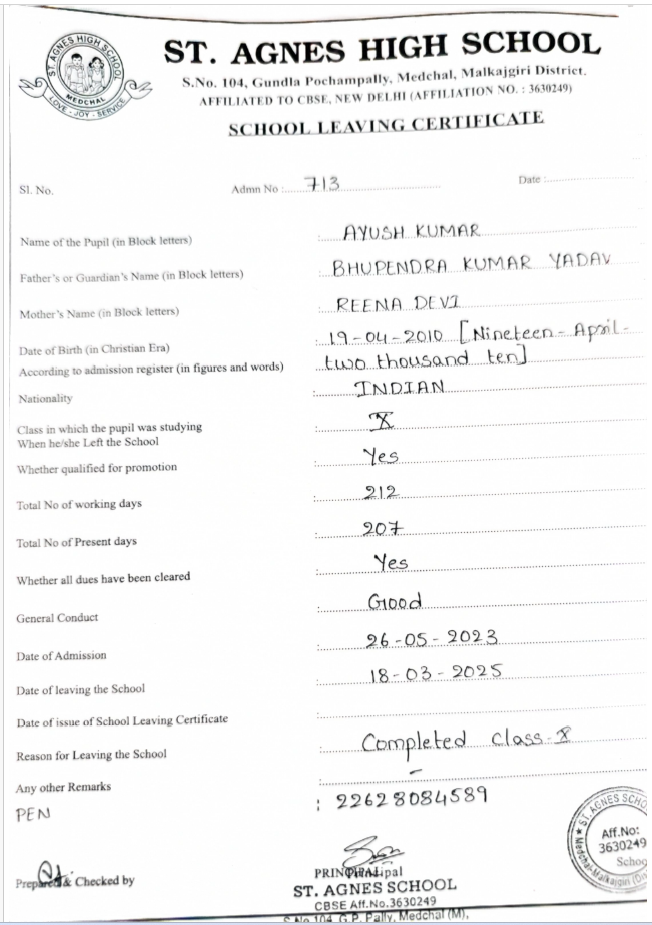 ST. AGNES HIGH SCHOOL
MEDCHAL
LOVE - JOY - SERVICE
ST. AGNES HIGH SCHOOL
S.No. 104, Gundla Pochampally, Medchal, Malkajgiri District.
AFFILIATED TO CBSE, NEW DELHI (AFFILIATION NO. : 3630249)
SCHOOL LEAVING CERTIFICATE
Sl. No. Admn No : 713 Date :
Name of the Pupil (in Block letters) : AYUSH KUMAR
Father's or Guardian's Name (in Block letters) : BHUPENDRA KUMAR YADAV
Mother's Name (in Block letters) : REENA DEVI
Date of Birth (in Christian Era) : 19-04-2010 [Nineteen - April -
According to admission register (in figures and words) two thousand ten]
Nationality : INDIAN
Class in which the pupil was studying : X
When he/she Left the School
Whether qualified for promotion : Yes
Total No of working days : 212
Total No of Present days : 207
Whether all dues have been cleared : Yes
General Conduct : Good
Date of Admission : 26-05-2023
Date of leaving the School : 18-03-2025
Date of issue of School Leaving Certificate :
Reason for Leaving the School : Completed class-X
Any other Remarks : -
PEN : 22628084589
ST. AGNES SCHO
Aff.No:
3630249
Schoo
Medchal-Malkajgiri (Dis
Prepared & Checked by
PRINCIPAL
ST. AGNES SCHOOL
CBSE Aff.No.3630249
S.No.104, G.P. Pally, Medchal (M),